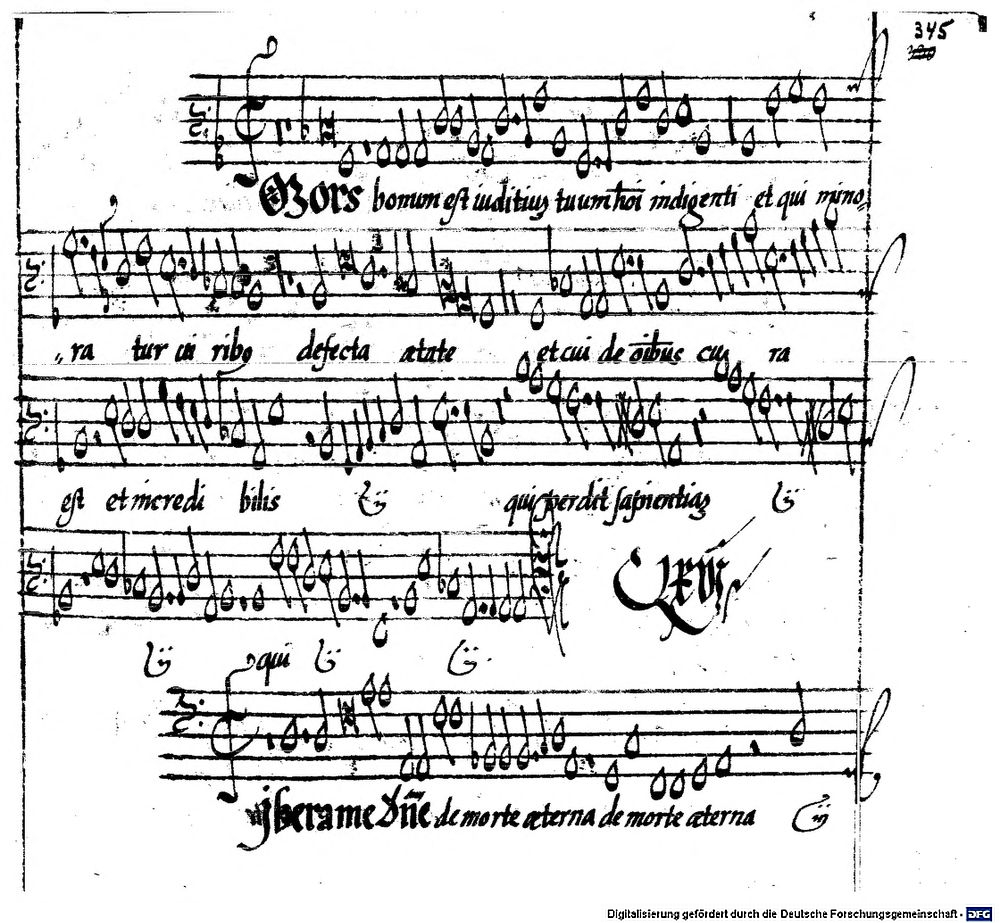 345
O Mors bonum est iuditiuʒ tuum hoi indigenti et qui mino„
„ra tur ui ribꝯ defecta ætate et cui de oibus cu ra
est et incredi bilis ij qui perdit sapientiaʒ ij
ij qui ij ij
Libera me Dne de morte æterna de morte æterna ij
Digitalisierung gefördert durch die Deutsche Forschungsgemeinschaft - DFG